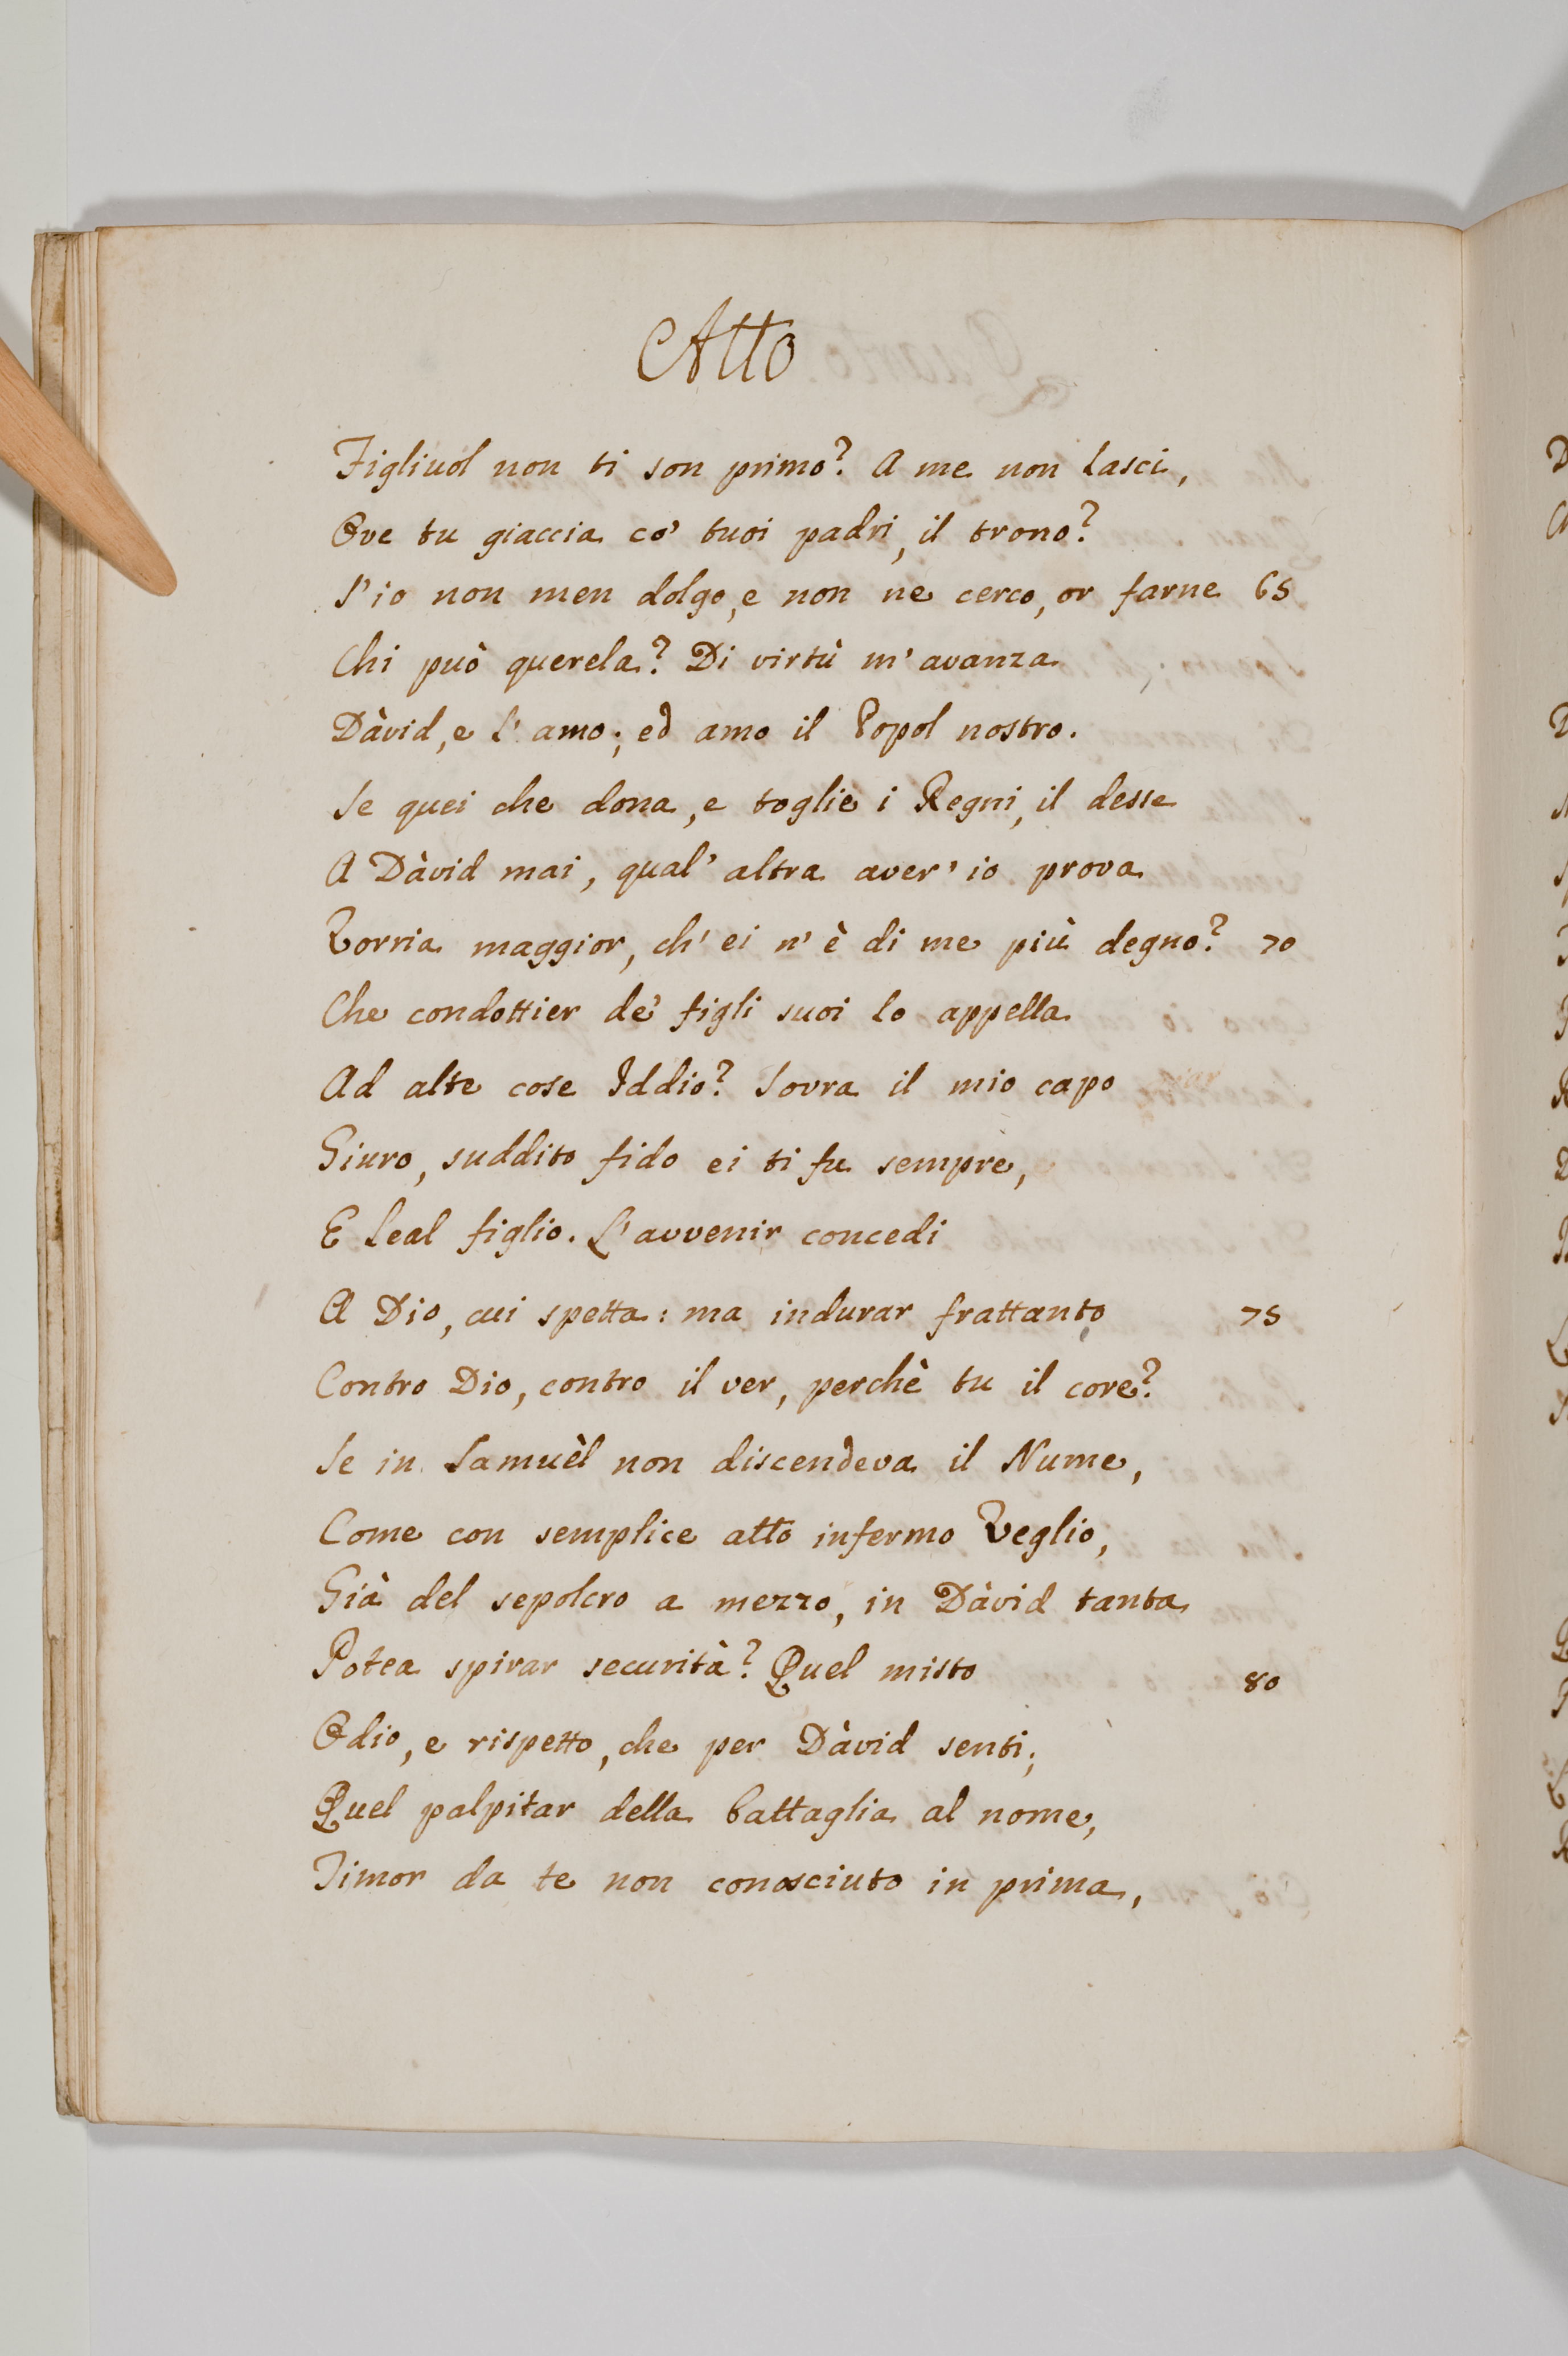 Atto
Figliuol non ti son primo? A me non lasci,
Ove tu giaccia co' tuoi padri, il trono?
S'io non men dolgo, e non ne cerco, or farne 65
Chi può querela? Di virtù m'avanza
Dàvid, e l'amo; ed amo il Popol nostro.
Se quei che dona, e toglie i Regni, il desse
A Dàvid mai, qual' altra aver' io prova
Vorria maggior, ch' ei n' è di me più degno? 70
Che condottier de' figli suoi lo appella
Ad alte cose Iddio? Sovra il mio capo
Giuro, suddito fido ei ti fu sempre,
E leal figlio. L'avvenir concedi
A Dio, cui spetta: ma indurar frattanto 75
Contro Dio, contro il ver, perchè tu il core?
Se in Samuèl non discendeva il Nume,
Come con semplice atto infermo Veglio,
Già del sepolcro a mezzo, in Dàvid tanta
Potea spirar securità? Quel misto 80
Odio, e rispetto, che per Dàvid senti;
Quel palpitar della battaglia al nome,
Timor da te non conosciuto in prima,